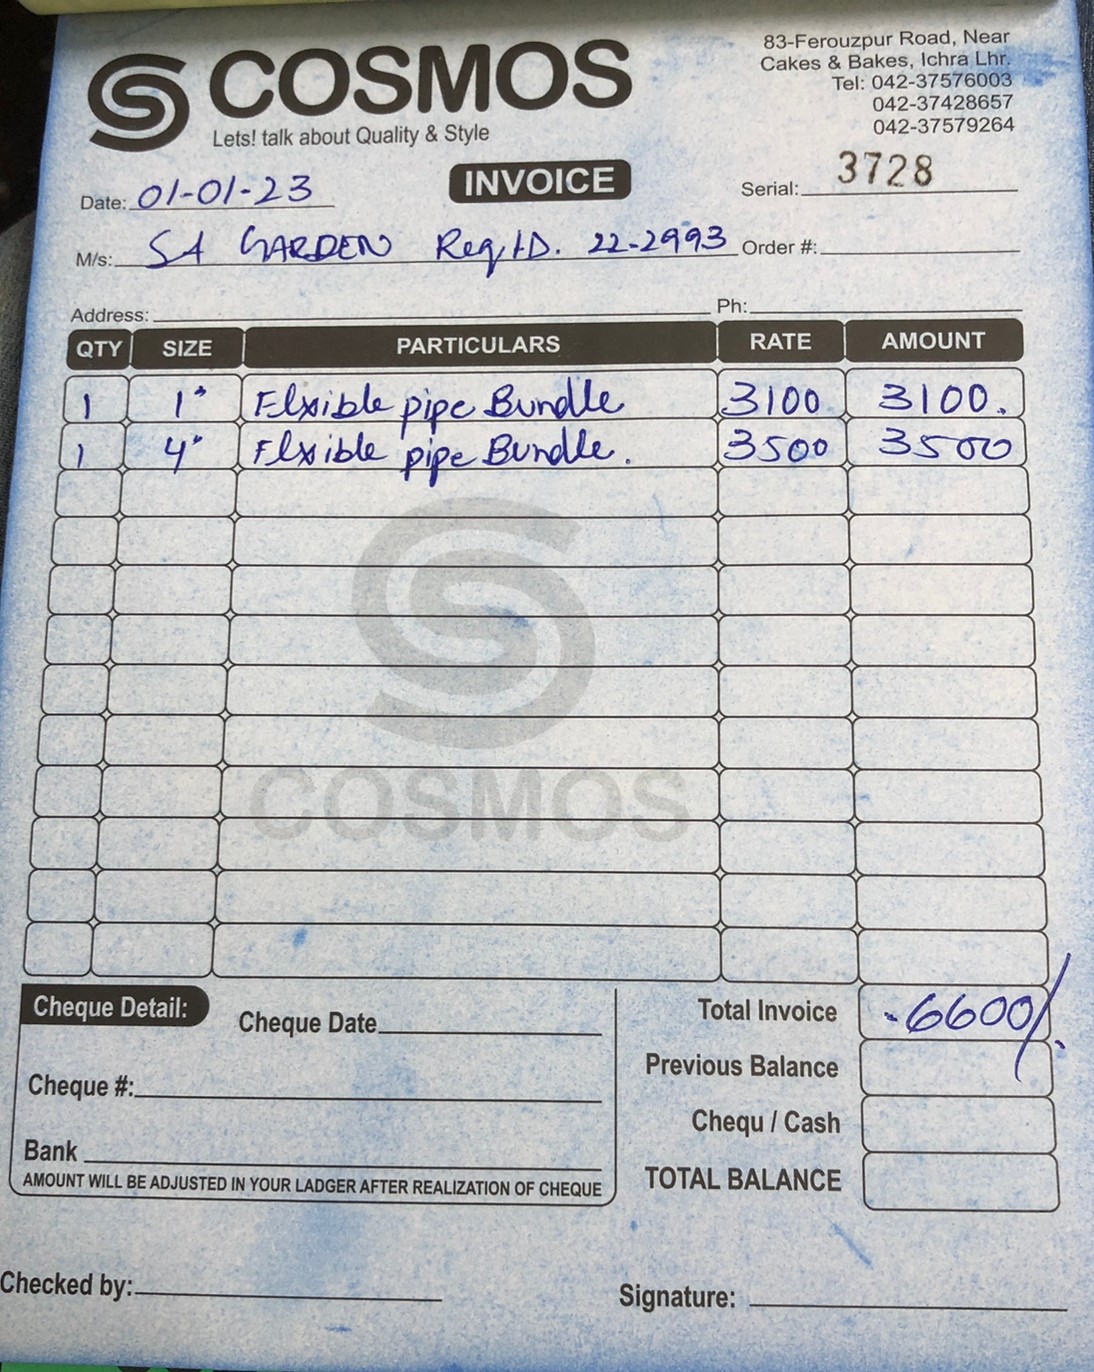 COSMOS
Lets! talk about Quality & Style
83-Ferouzpur Road, Near
Cakes & Bakes, Ichra Lhr.
Tel: 042-37576003
042-37428657
042-37579264
INVOICE
Date: 01-01-23
Serial: 3728
M/s: SA GARDEN Reg ID. 22-2993 Order #:
Address: Ph:
QTY SIZE PARTICULARS RATE AMOUNT
1 1" Flxible pipe Bundle 3100 3100.
1 4" Flxible pipe Bundle. 3500 3500
COSMOS
Cheque Detail:
Cheque Date
Cheque #:
Bank
AMOUNT WILL BE ADJUSTED IN YOUR LADGER AFTER REALIZATION OF CHEQUE
Total Invoice 6600/.
Previous Balance
Chequ / Cash
TOTAL BALANCE
Checked by:
Signature: